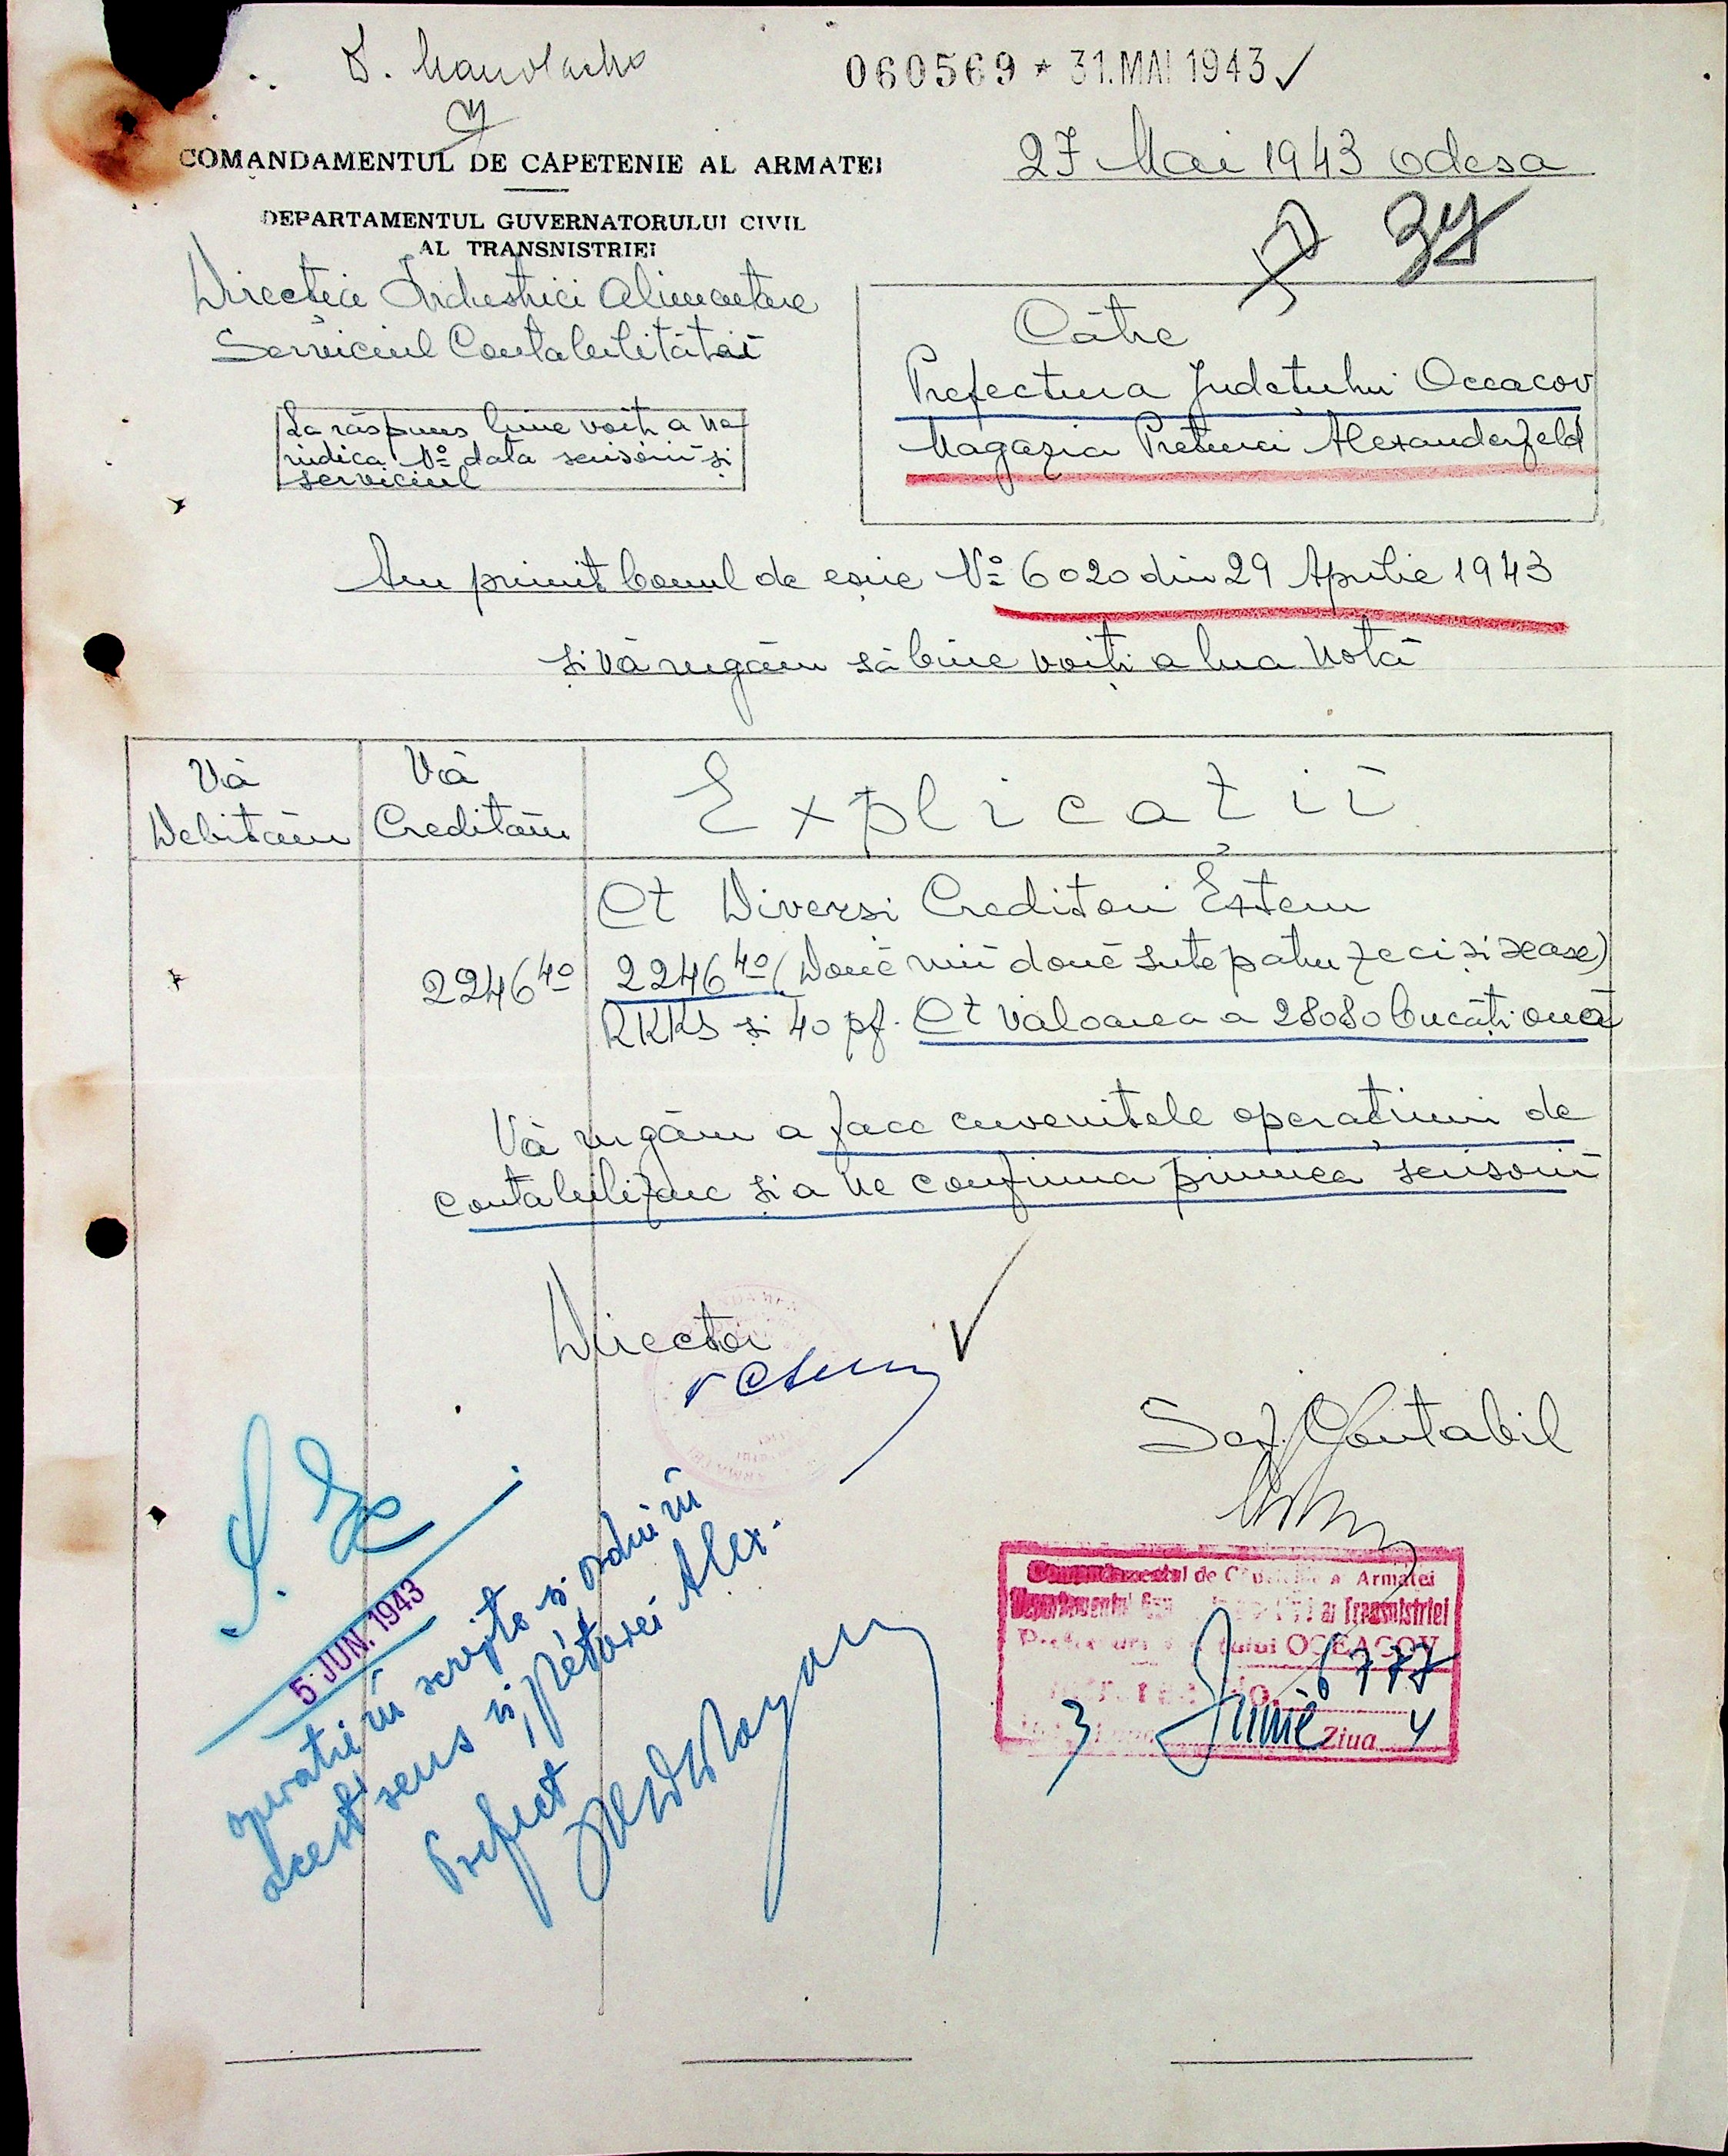 D. Manolache
060569 * 31. MAI 1943
COMANDAMENTUL DE CAPETENIE AL ARMATEI
27 Mai 1943 Odesa
37
DEPARTAMENTUL GUVERNATORULUI CIVIL
AL TRANSNISTRIEI
Direcția Industriei Alimentare
Serviciul Contabilităței
Către
Prefectura Județului Oceacov
Magazia Preturei Alexanderfeld
La răspuns bine voiți a ne
indica № data scrisorii și
serviciul
Am primit bonul de eșire № 6020 din 29 Aprilie 1943
și vă rugăm să bine voiți a lua notă
Vă Debităm
Vă Credităm
Explicații
Ct Diverși Creditori Externi
2246 40
2246 40 (Două mii două sute patru zeci și șease)
RKKS și 40 pf. Ct valoarea a 28080 bucăți ouă
Vă rugăm a face cuvenitele operațiuni de
contabilizare și a ne confirma primirea scrisorii
Director
Șef Contabil
5 JUN. 1943
operație în scripte și ordin în
acest sens și Preturei Alex.
Prefect
Comandamentul de Căpetenie al Armatei
Departamentul al Transnistriei
OCEACOV
No. 6777
3 Iunie Ziua 4